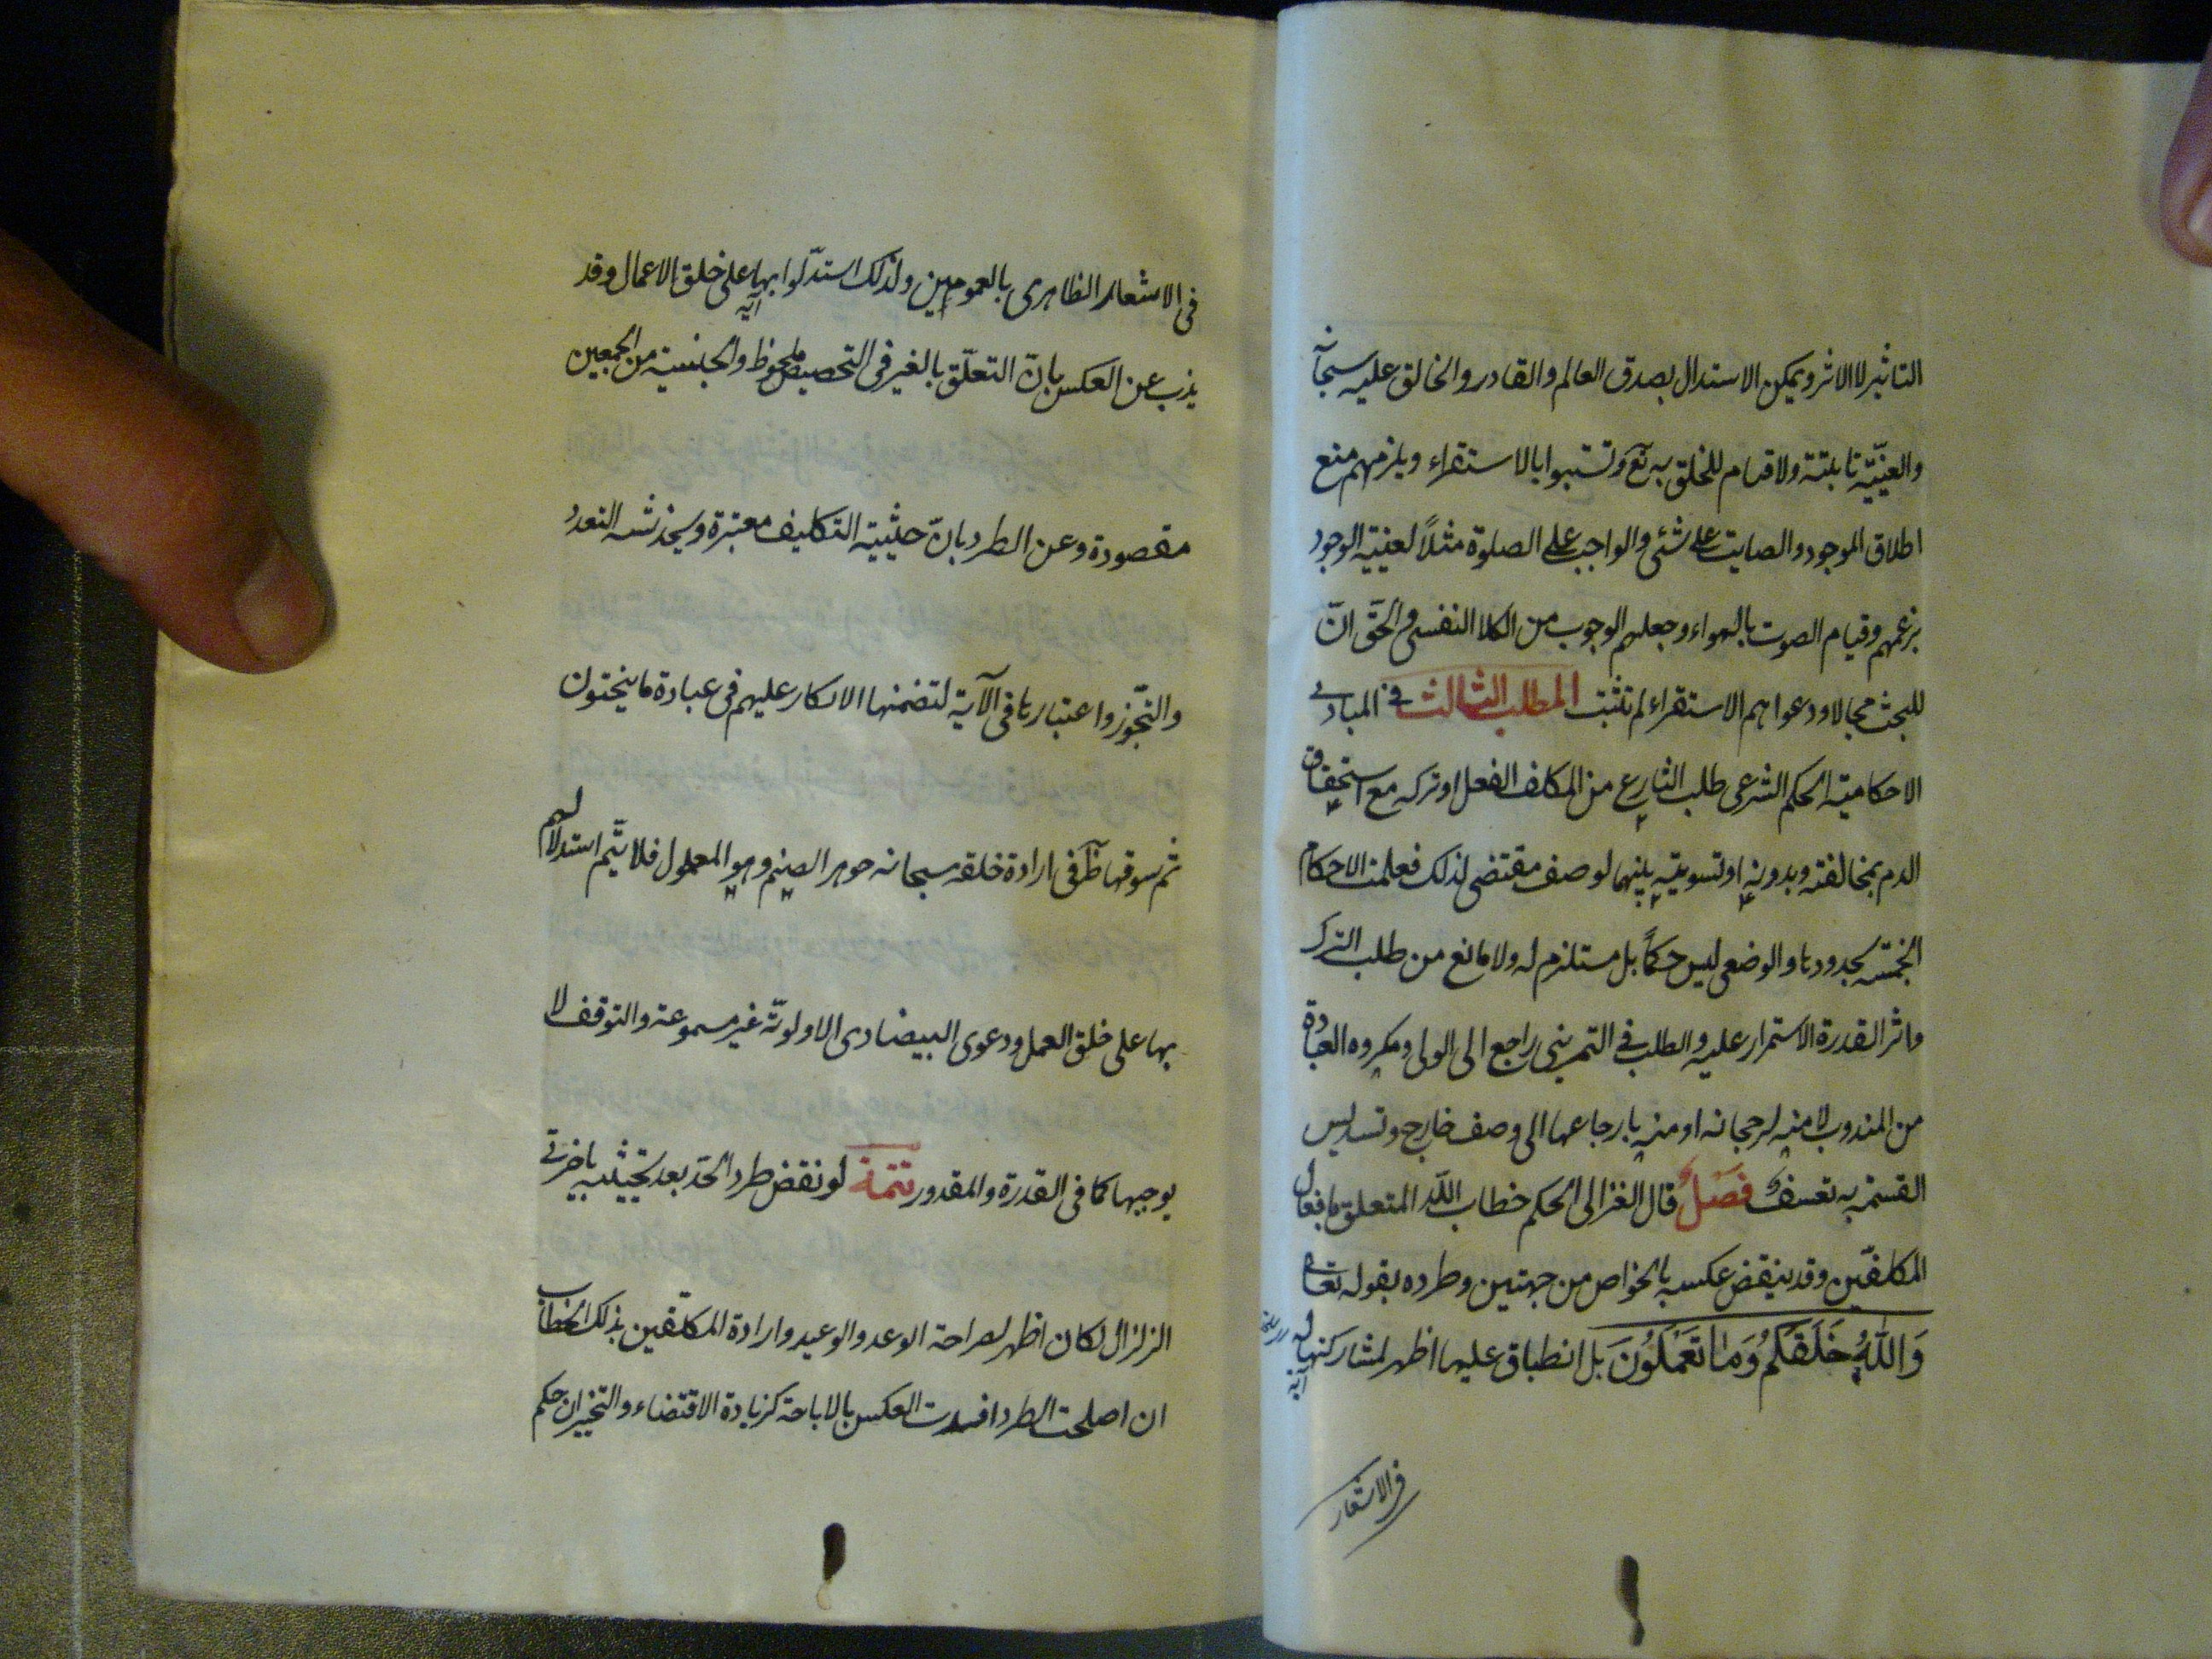 التاثير لا الاثر ويمكن الاستدلال بصدق العالم والقادر والخالق عليه سبحانه
والعينيّة ثابتة ولا قيام للخلق به تع وتشبثوا بالاستقراء ويلزمهم منع
اطلاق الموجود والصايت على شئى والواجب على الصلوة مثلاً لعينية الوجود
بزعمهم وقيام الصوت بالهواء وجعلهم الوجوب من الكلام النفسى والحق انّ
للبحث مجالا ودعواهم الاستقراء لم تثبت المطلب الثالث في المبادى
الاحكامية الحكم الشرعى طلب الشارع من المكلف الفعل او تركه مع استحقاق
الذم بمخالفته وبدونه او تسويته بينهما لوصف مقتضى لذلك فعلمت الاحكام
الخمسة بحدودها والوضعى ليس حكماً بل مستلزم له ولا مانع من طلب الترك
واثر القدرة الاستمرار عليه والطلب في التمرينى راجع الى الولى ومكروه العبادة
من المندوب لا منه لرجحانه او منه بارجاعها الى وصف خارج وتسديس
القسمة به تعسف فصل قال الغزالى الحكم خطاب الله المتعلق بافعال
المكلفين وقد ينقض عكسه بالخواص من جهتين وطرده بقوله تعالى
وَاللهُ خَلَقَكُمْ وَمَا تَعْمَلُونَ بل انطباق عليها اظهر لمشاركتها له
آية
في الاشعار
فى الاشعار الظاهرى بالعمومين ولذلك استدلّوا بها على خلق الاعمال وقد
آية
يذب عن العكس بانّ التعلّق بالغير فى التخصيص ملحوظ والجنسية من الجمعين
مقصودة وعن الطرد بانّ حيثية التكليف معتبرة ويخدشه التعدد
والتّجوز واعتبارها فى الآية لتضمنها الانكار عليهم فى عبادة ما ينحتون
ثم سوقها ظ فى ارادة خلقه سبحانه جوهر الصنم وهو المعمول فلا يتم استدلالهم
بها على خلق العمل ودعوى البيضاوى الاولويّة غير مسموعة والتوقف لا
يوجبها كما فى القدرة والمقدور تتمة لو نقض طرد الحد بعد تحييثه باخرتى
الزلزال لكان اظهر لصراحة الوعد والوعيد وارادة المكلّفين بذلك الخطاب
ان اصلحت الطرد افسدت العكس بالاباحة كزيادة الاقتضاء والتخيير ان حكم